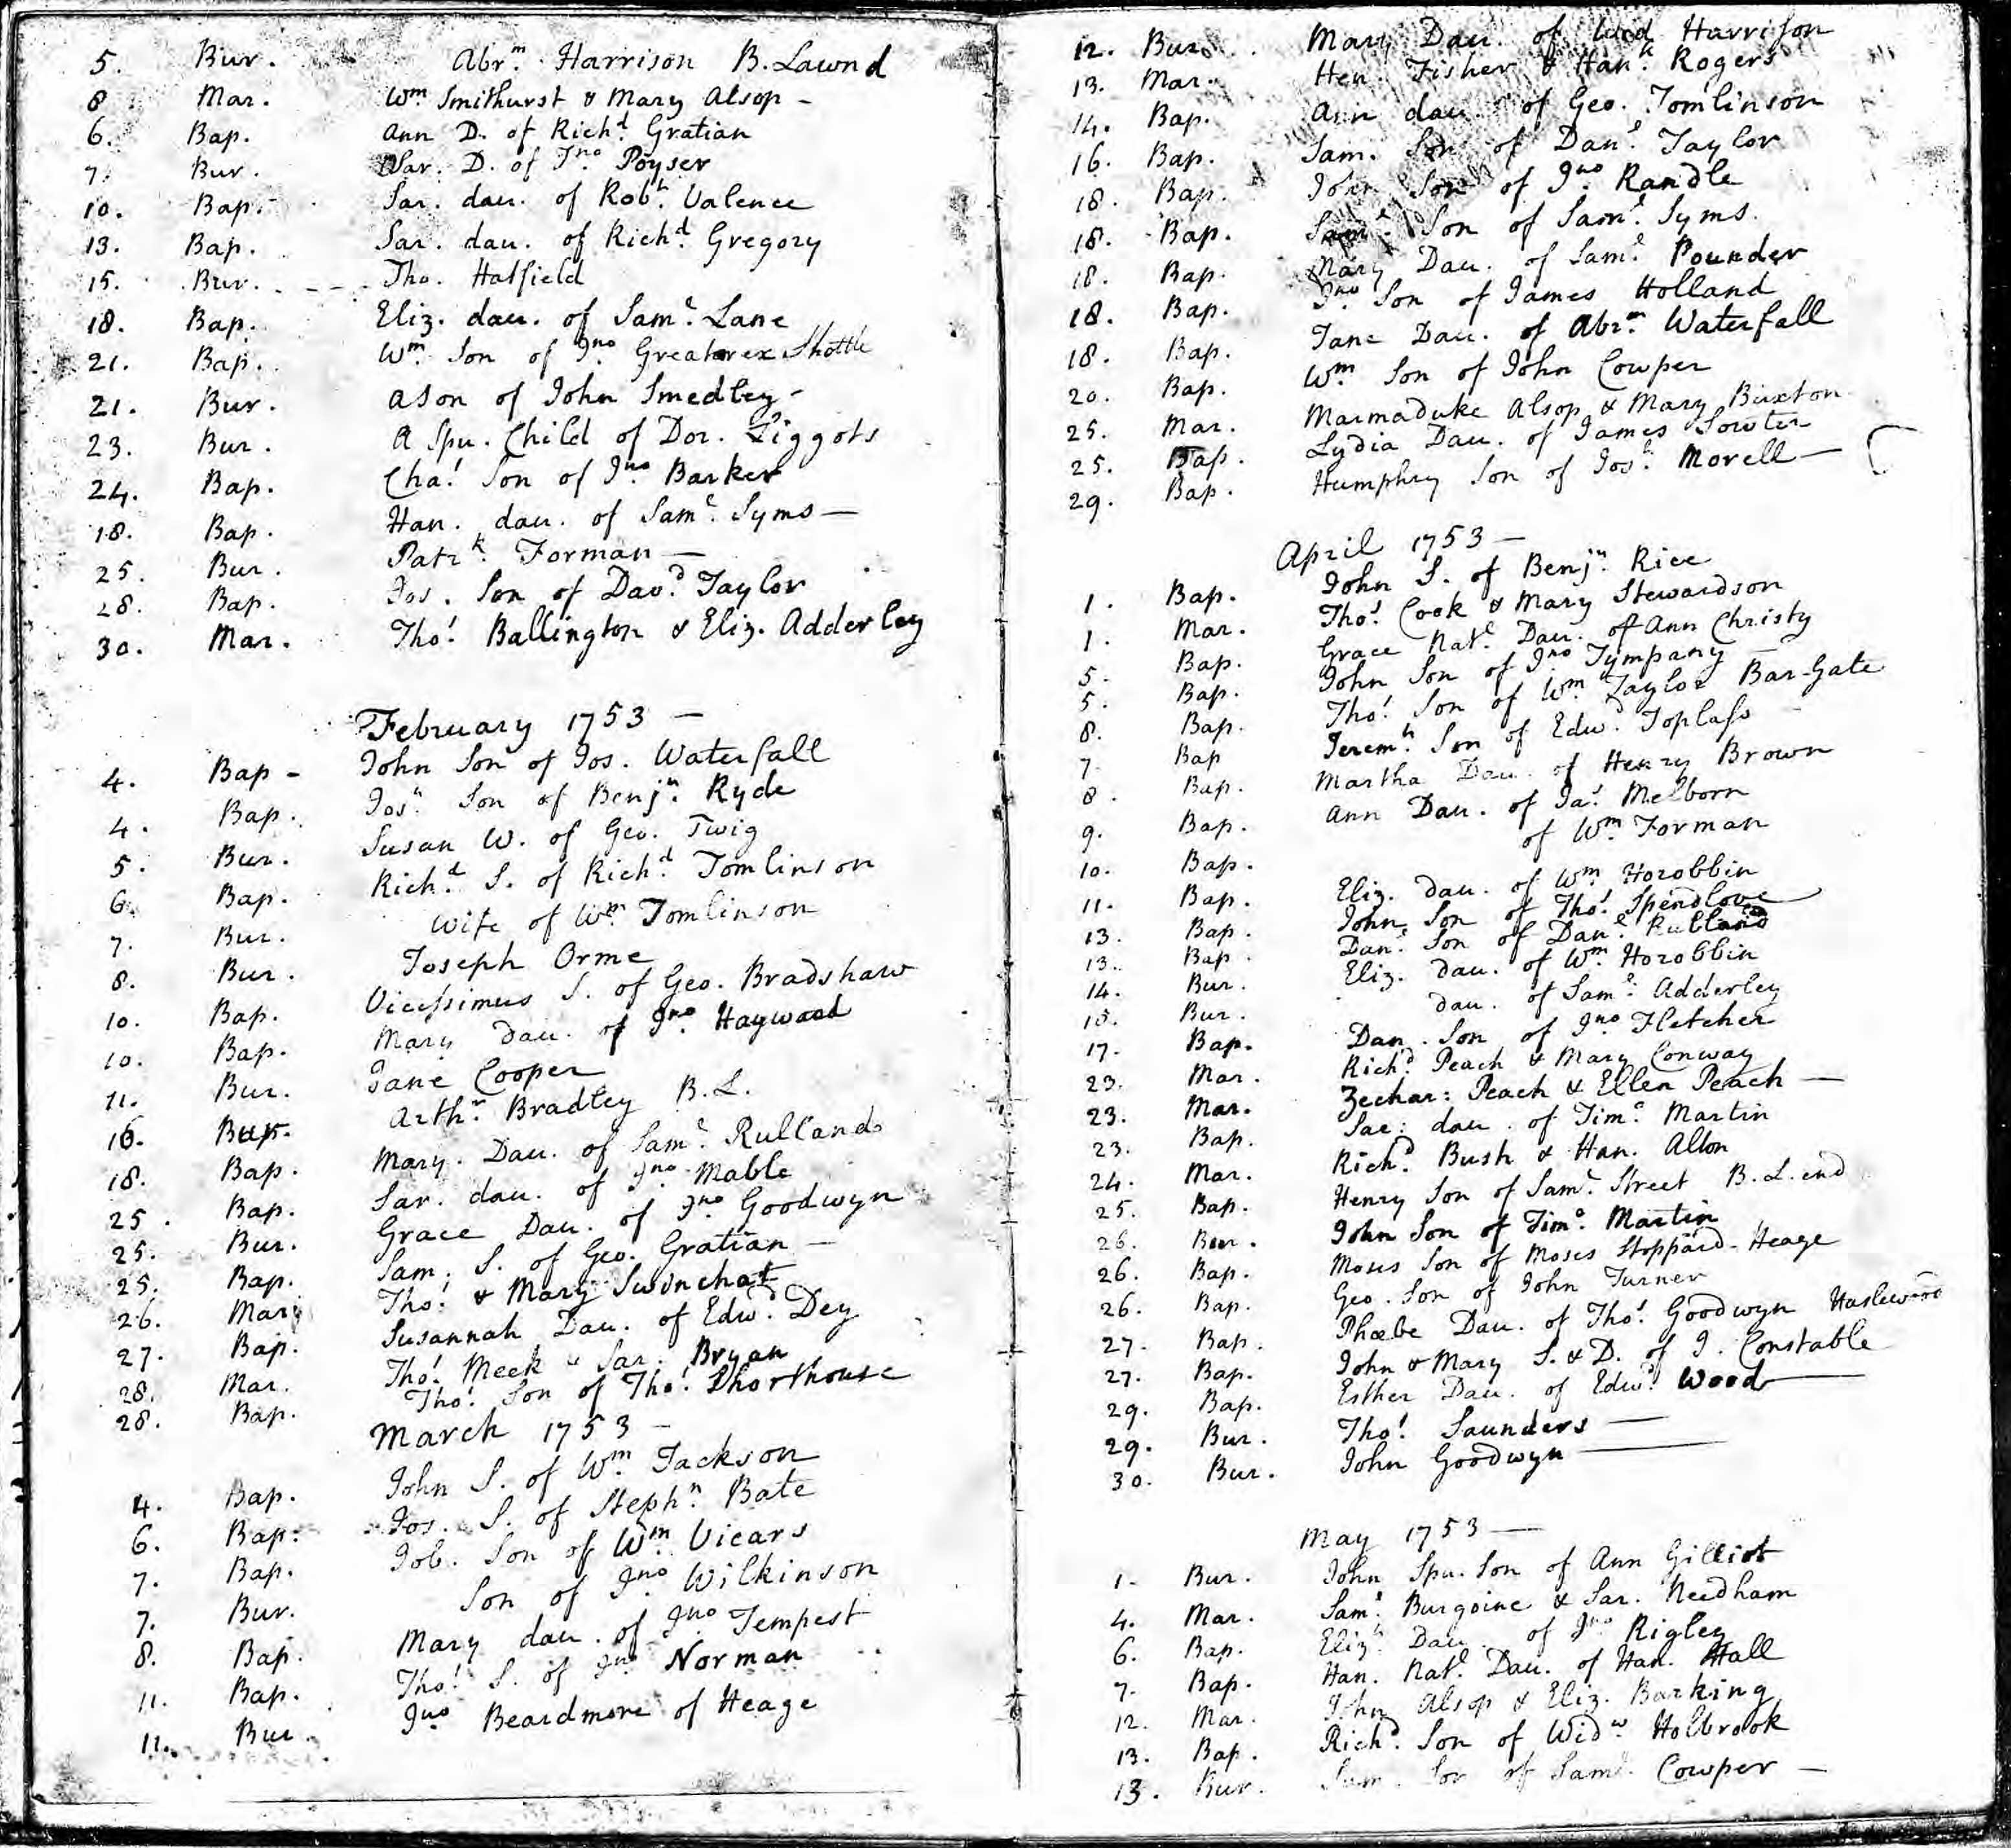 5. Bur. Abr.m Harrison B. Lawnd
8 Mar. Wm Smithurst & Mary Alsop -
6. Bap. Ann D. of Rich.d Gratian
7. Bur. Sar. D. of Jno Poyser
10. Bap. Sar. dau. of Rob.t Valence
13. Bap. Sar. dau. of Rich.d Gregory
15. Bur. - - - Tho. Hatfield
18. Bap. Eliz. dau. of Sam.l Lane
21. Bap. Wm Son of Jno Greatorex Shottle
21. Bur. a Son of John Smedley -
23. Bur. A Spu. Child of Dor. Liggots
24. Bap. Cha.s Son of Jno Barker
18. Bap. Han. dau. of Sam.l Syms —
25. Bur. Patr.k Forman —
28. Bap. Jos. Son of Dav.d Taylor
30. Mar. Tho.s Ballington & Eliz. Adderley
February 1753 —
4. Bap - John Son of Jos. Waterfall
4. Bap. Jos.h Son of Benj.n Ryde
5. Bur. Susan W. of Geo. Twig
6. Bap. Rich.d S. of Rich.d Tomlinson
7. Bur. Wife of Wm Tomlinson
8. Bur. Joseph Orme
10. Bap. Vicessimus S. of Geo. Bradshaw
10. Bap. Mary dau. of Jno Haywood
11. Bur. Jane Cooper
16. Bur. Arth.r Bradley B. L.
18. Bap. Mary Dau. of Sam.l Rulland
25. Bap. Sar. dau. of Jno Mable
25. Bur. Grace Dau. of Jno Goodwyn
25. Bap. Sam. S. of Geo. Gratian —
26. Mar. Tho.s & Mary Swinchat
27. Bap. Susannah Dau. of Edw.d Dey
28. Mar. Tho.s Meek & Sar. Bryan
28. Bap. Tho.s Son of Tho.s Shorthouse
March 1753 —
4. Bap. John S. of Wm Jackson
6. Bap. Jos. S. of Steph.n Bate
7. Bap. Job. Son of Wm Vicars
7. Bur. Son of Jno Wilkinson
8. Bap. Mary dau. of Jno Tempest
11. Bap. Tho.s S. of Jno Norman
11. Bur. Jno Beardmore of Heage
12. Bur. Mary Dau. of Harrison
13. Mar. Hen. Fisher & Han.h Rogers
14. Bap. Ann dau. of Geo. Tomlinson
16. Bap. Sam. Son of Dan.l Taylor
18. Bap. John Son of Jno Randle
18. Bap. Sam.l Son of Sam.l Syms.
18. Bap. Mary Dau. of Sam.l Pounder
18. Bap. Jno Son of James Holland
18. Bap. Jane Dau. of Abr.m Waterfall
20. Bap. Wm Son of John Cowper
25. Mar. Marmaduke Alsop & Mary Buxton
25. Bap. Lydia Dau. of James Sowter
29. Bap. Humphry Son of Jos.h Morell —
April 1753 —
1. Bap. John S. of Benj.n Rice
1. Mar. Tho.s Cook & Mary Stewardson
5. Bap. Grace Nat.l Dau. of Ann Christy
5. Bap. John Son of Jno Tympany
8. Bap. Tho.s Son of Wm Taylor Bar-Gate
7. Bap Jerem.h Son of Edw.d Toplass
8. Bap. Martha Dau. of Henry Brown
9. Bap. Ann Dau. of Ja.s Melborn
10. Bap. of Wm Forman
11. Bap. Eliz. dau. of Wm Horobbin
13. Bap. John Son of Tho.s Spendlove
13. Bap. Dan.l Son of Dan.l Rulland
14. Bur. Eliz. dau. of Wm Horobbin
15. Bur. dau. of Sam.l Adderley
17. Bap. Dan. Son of Jno Fletcher
23. Mar. Rich.d Peach & Mary Conway
23. Mar. Zechar: Peach & Ellen Peach —
23. Bap. Sar: dau. of Tim.o Martin
24. Mar. Rich.d Bush & Han. Allon
25. Bap. Henry Son of Sam.l Street B. L. end
26. Bur. John Son of Tim.o Martin
26. Bap. Moses Son of Moses Stoppard - Heage
26. Bap. Geo. Son of John Turner
27. Bap. Phœbe Dau. of Tho.s Goodwyn Haslewood
27. Bap. John & Mary S. & D. of J. Constable
29. Bap. Esther Dau. of Edw.d Wood —
29. Bur. Tho.s Saunders —
30. Bur. John Goodwyn —
May 1753 —
1. Bur. John Spu. Son of Ann Gilliot
4. Mar. Sam.l Burgoine & Sar. Needham
6. Bap. Eliz.h Dau. of Jno Rigley
7. Bap. Han. Nat.l Dau. of Han. Hall
12. Mar. John Alsop & Eliz. Barking
13. Bap. Rich.d Son of Wid.w Holbrook
13. Bur. Sam. Son of Sam.l Cowper —